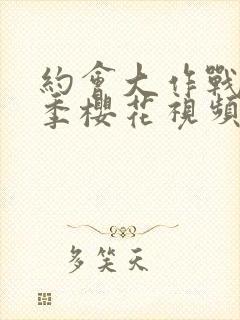 約會大作戰
季櫻花視頻
多笑天